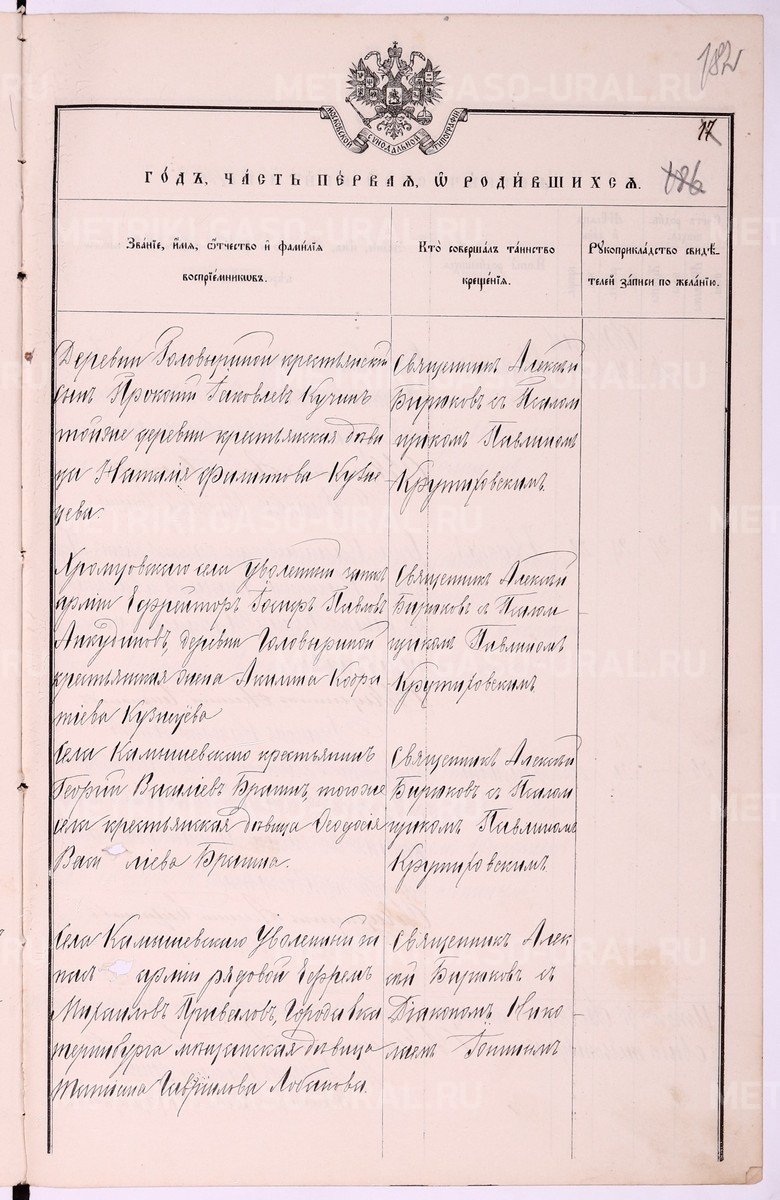 182
17
186
МОСКОВСКОЙ СѴНОДАЛЬНОЙ ТИПОГРАФІИ
ГО́ДЪ, ЧА́СТЬ ПЕ́РВАЯ, Ѿ РОДИ́ВШИХСѦ.
Зва́нїе, и҆́мѧ, ѻ҆́тчество и҆ фами́лїѧ
воспрїе́мникѡвъ.
Кто̀ соверша́лъ та́инство
креще́нїѧ.
Рꙋкоприкла́дство свидѣ́-
телей за́писи по жела́нїю.
Деревни Головыриной крестьянскій
сынъ Прокопій Іаковлевъ Кучинъ
тойже деревни крестьянская дѣви
ца Наталія Филиппова Кузне
цева.
Священникъ Алексѣй
Бирюковъ съ Псалом
щикомъ Павлиномъ
Крутиховскимъ.
Хромцовскаго села уволенный запасъ
арміи Ефрейторъ Іосифъ Павловъ
Анкудиновъ, деревни Головыриной
крестьянская жена Акилина Кодра
тіева Кузнецева
Священникъ Алексѣй
Бирюковъ съ Псалом
щикомъ Павлиномъ
Крутиховскимъ
Села Камышевскаго крестьянинъ
Георгій Василіевъ Брагинъ, тогоже
села крестьянская дѣвица Ѳеодосія
Васи ліева Брагина.
Священникъ Алексѣй
Бирюковъ съ Псалом
щикомъ Павлиномъ
Крутиховскимъ.
Села Камышевскаго Уволенный за
пасъ арміи рядовой Ефремъ
Михаиловъ Приваловъ, Города Ека
теринбурга мѣщанская дѣвица
Татіана Гавріилова Лобанова.
Священникъ Алек
сѣй Бирюковъ съ
Діакономъ Нико
лаемъ
METRIKI.GASO-URAL.RU